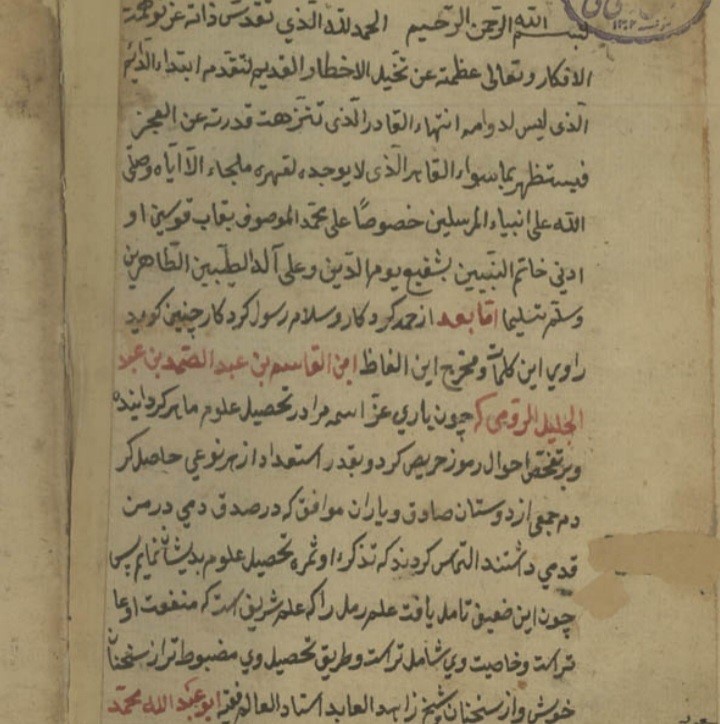 بسم الله الرحمن الرحیم الحمد لله الذی تقدس ذاته عن توهمه
الافکار وتعالی عظمته عن تخیل الاخطار القدیم لتقدمه ابتداء الدائم
الذی لیس لدوامه انتهاء القادر الذی تنزهت قدرته عن العجز
فیستظهر بما سواه القاهر الذی لا یوجد لقهره ملجاء الا ایاه وصلی
الله علی انبیاء المرسلین خصوصًا علی محمد الموصوف بقاب قوسین او
ادنی خاتم النبیین بشفیع یوم الدین وعلی آله الطیبین الطاهرین
وسلم تسلیما اما بعد از حمد کردکار وسلام رسول کردکار چنین کوید
راوی این کلمات ومخرج این الفاظ ابن القاسم بن عبد الصمد بن عبد
الجلیل الرومی که چون یاری عز اسمه مرا در تحصیل علوم ماهر کردانیده
وبر تفحص احوال رموز حریص کرد وبقدر استعداد از هر نوعی حاصل کر
دم جمعی از دوستان صادق ویاران موافق که در صدق دمی در من
قدمی داشتند التماس کردند که تذکره او ثمره تحصیل علوم بدیشان نمایم پس
چون این ضعیف تامل یافت علم رمل را که علم شریق است که منفعت او عا
تر است وخاصیت وی شامل تر است وطریق تحصیل وی مضبوط تر از سخنان
خوش واز سخنان شیخ زاهد العابد استاد العالم فقیه ابو عبد الله محمد